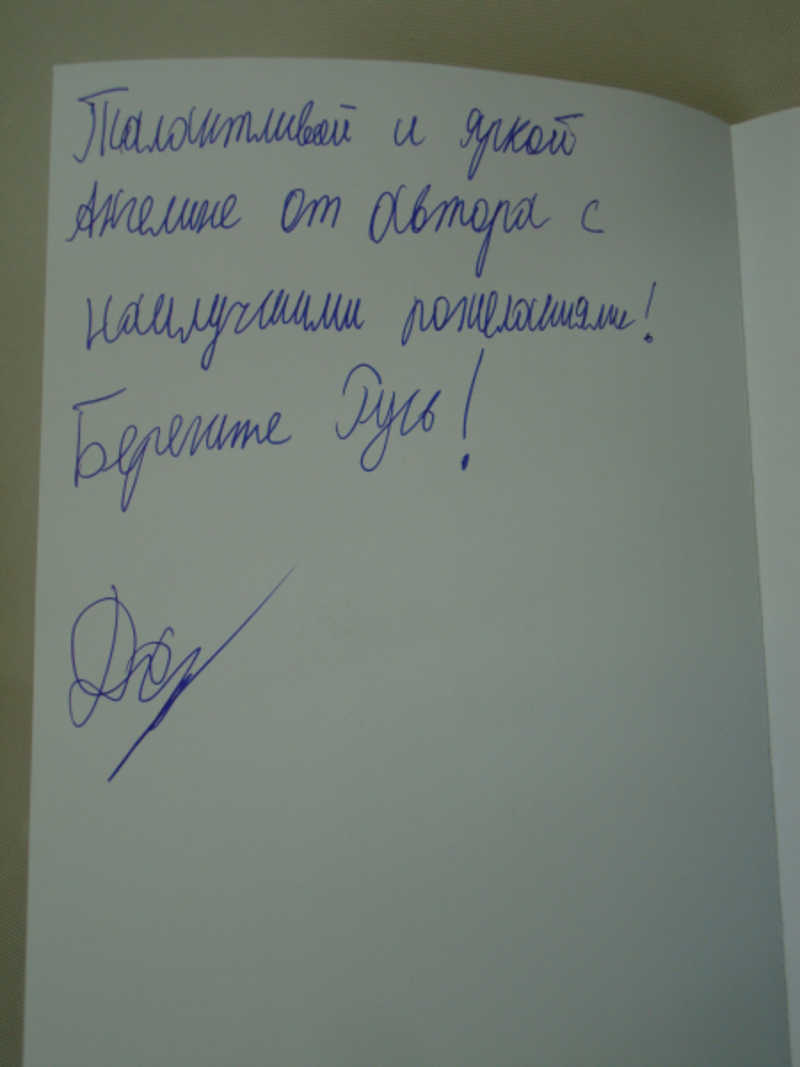 Талантливой и яркой
Ангелине от автора с
наилучшими пожеланиями!
Берегите Русь!